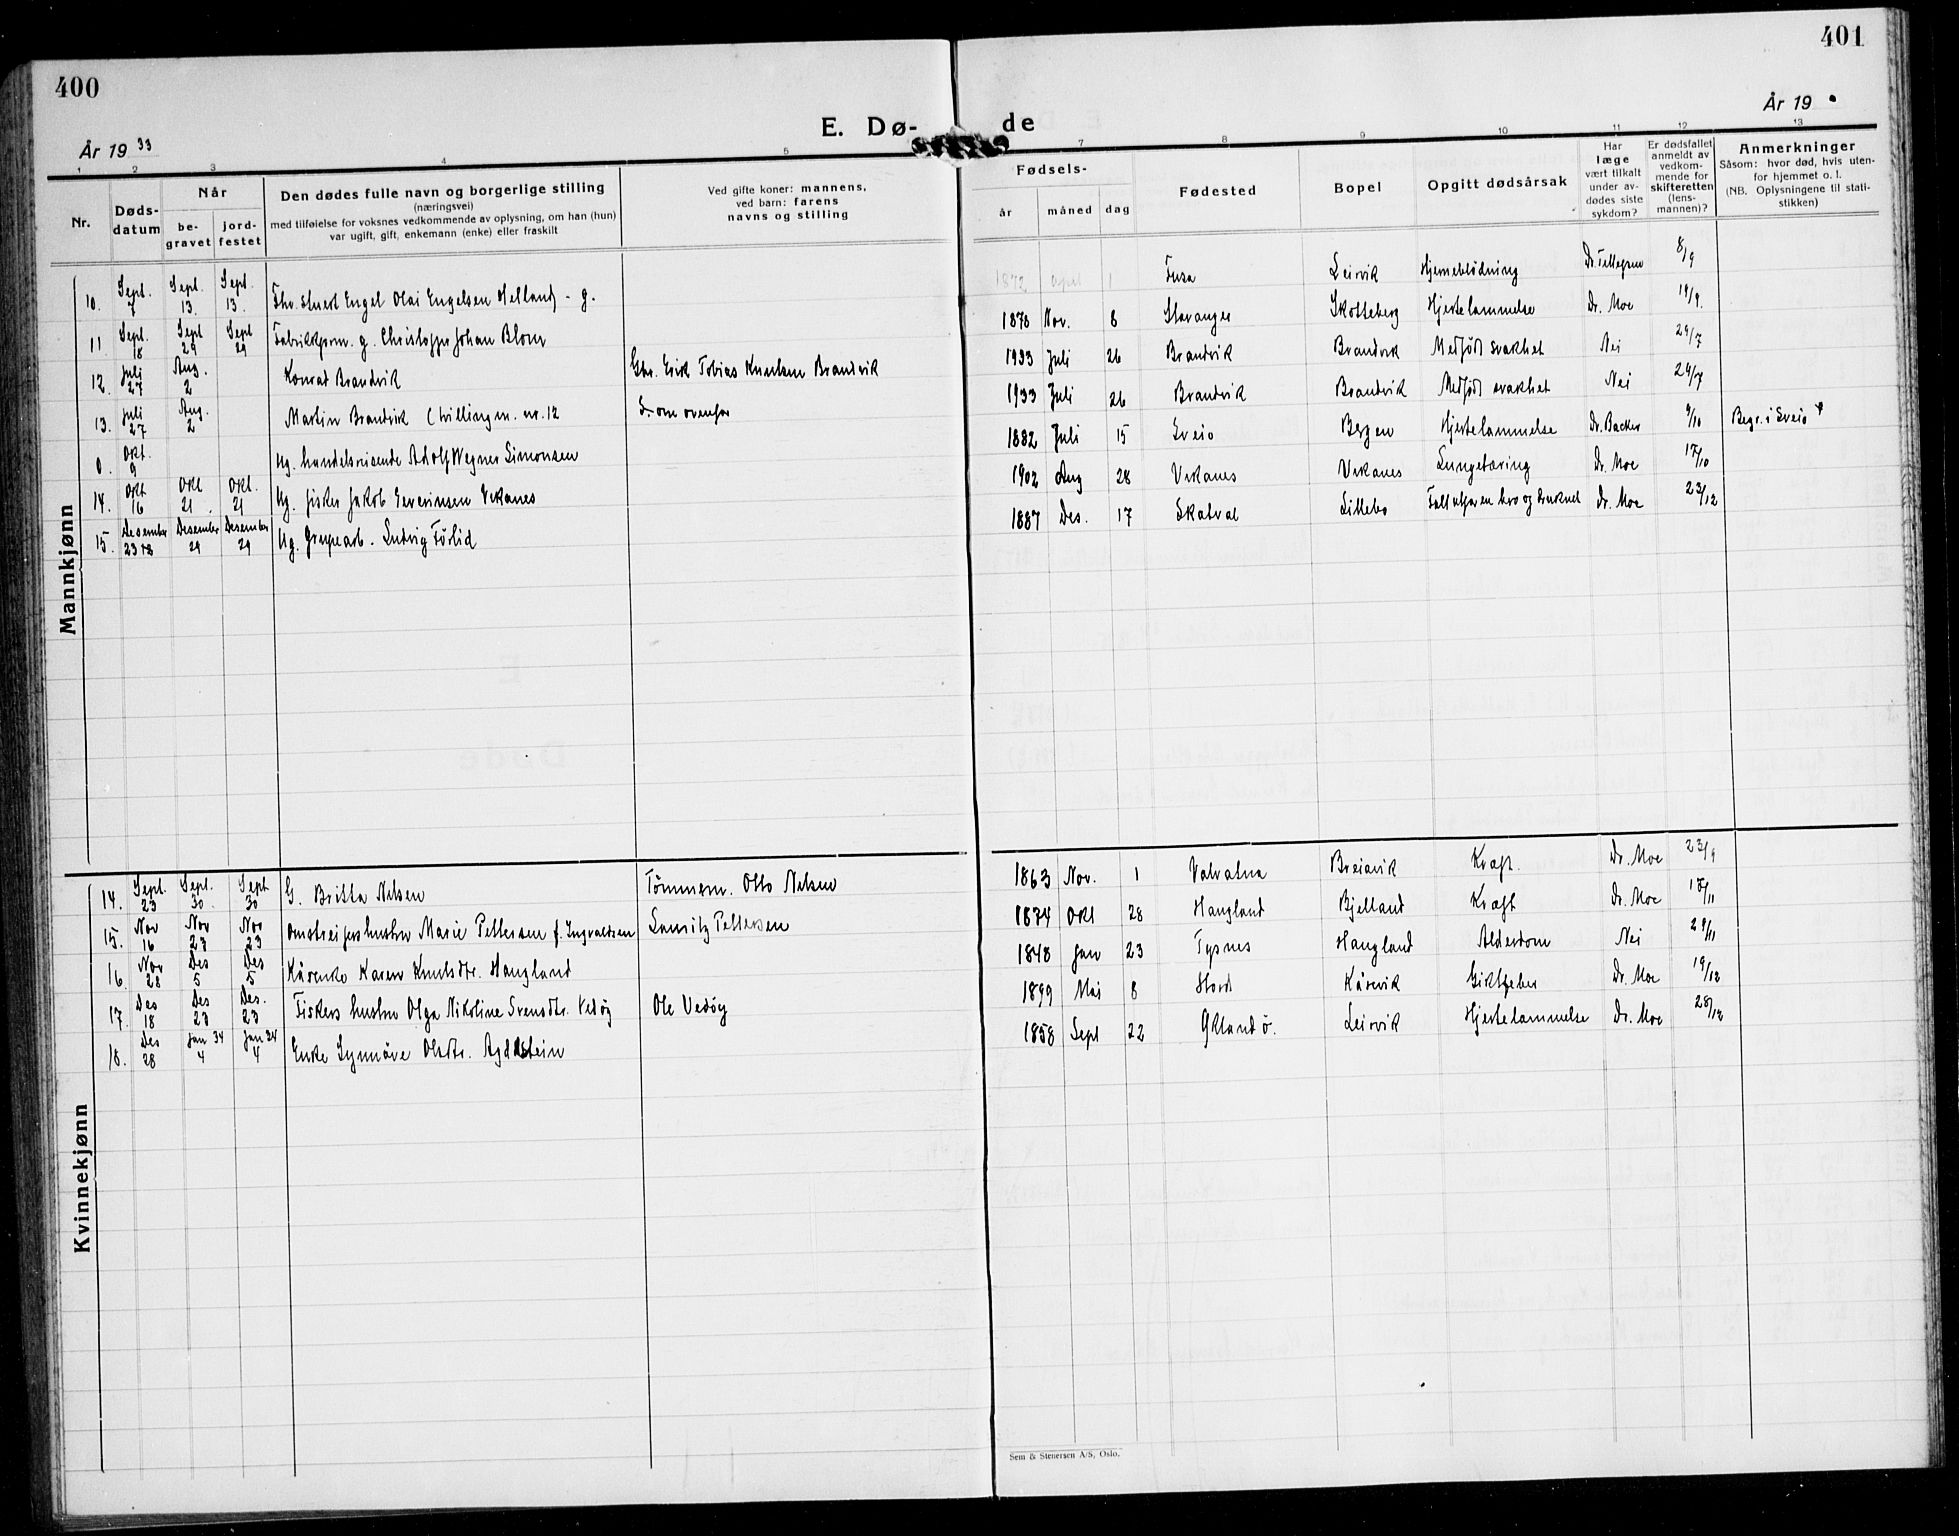 400
401
E. Dø-
de
År 19 33
År 19
1 2 3 4 5 7 8 9 10 11 12 13
Nr.
Døds-
datum
Når
be-
gravet
jord-
festet
Den dødes fulle navn og borgerlige stilling
(næringsvei)
med tilføielse for voksnes vedkommende av oplysning, om han (hun)
var ugift, gift, enkemann (enke) eller fraskilt
Ved gifte koner: mannens,
ved barn: farens
navns og stilling
Fødsels-
år måned dag
Fødested
Bopel
Opgitt dødsårsak
Har
læge
vært tilkalt
under av-
dødes siste
sykdom?
Er dødsfallet
anmeldt av
vedkom-
mende for
skifteretten
(lens-
mannen)?
Anmerkninger
Såsom: hvor død, hvis uten-
for hjemmet o. l.
(NB. Oplysningene til stati-
stikken)
Mannkjønn
10. Sept. 7 Sept. 13. Sept. 13. Engel Olai Engelsen Helland - g. 1872 april 1 Fusa Leirvik Hjerneblødning Dr. Tillegreen 8/9
11 Sept. 18 Sept 29 Sept 29 Fabrikkform. g. Christopher Johan Blom 1878 Nov. 8 Stavanger Skotteberg Hjertelammelse Dr. Moe 19/9.
12. Juli 27 Aug. 2 Konrad Brandvik Gbr. Erik Tobias Knutsen Brandvik 1933 Juli 26 Brandvik Brandvik Medfødt svakhet Nei 29/7
13. Juli 27 Aug. 2 Martin Brandvik (tvilling m. nr. 12 Som ovenfor 1933 Juli 26 Brandvik Brandvik Medfødt svakhet Nei 29/7
0. Okt. 9 Ug. handelsreisende Adolf Wegner Simonsen 1882 Juli 15 Sveio Bergen Hjertelammelse Dr. Backer 9/10 Begr. i Sveio
14. Okt 16 Okt 21 Okt. 21 Ug. fisker Jakob Severinsen Vikanes 1902 Aug 28 Vikanes Vikanes Lungetæring Dr. Moe 17/10
15. Desember 23 Desember 29 Desember 29 Ug. Grupearb. Ludvig Førlid 1887 Des. 17 Skatval Lillebo Falt utfor en bro og druknet Dr. Moe 23/12
Kvinnekjønn
14. Sept. 23 Sept. 30. Sept 30 G. Britta Nilsen Tømmerm. Otto Nilsen 1863 Nov. 1 Valvatna Breiavik Kreft. Dr. Moe 23/9
15. Nov 16 Nov 23 Nov 23 Omstreifershustru Marie Pettersen f. Ingvaldsen Lauritz Pettersen 1874 Okt 28 Haugland Bjelland Kreft Dr. Moe 18/11
16. Nov 28 Des 5 Des 5 Kårenke Karen Knutsdtr. Haugland 1848 Jan 23 Tysnes Haugland Alderdom Nei 29/11
17. Des 18 Des 23 Des. 23 Fiskers hustru Olga Nikoline Svensdtr. Vedøy Ole Vedøy 1899 Mai 8 Stord Kårevik Giktfeber Dr. Moe 19/12
18. Des 28 Jan 34 4 Jan 34 4 Enke Synnøve Olsdtr. Agdestein 1858 Sept 22 Økland ø. Leirvik Hjertelammelse Dr. Moe 28/12
Sem & Stenersen A/S, Oslo.